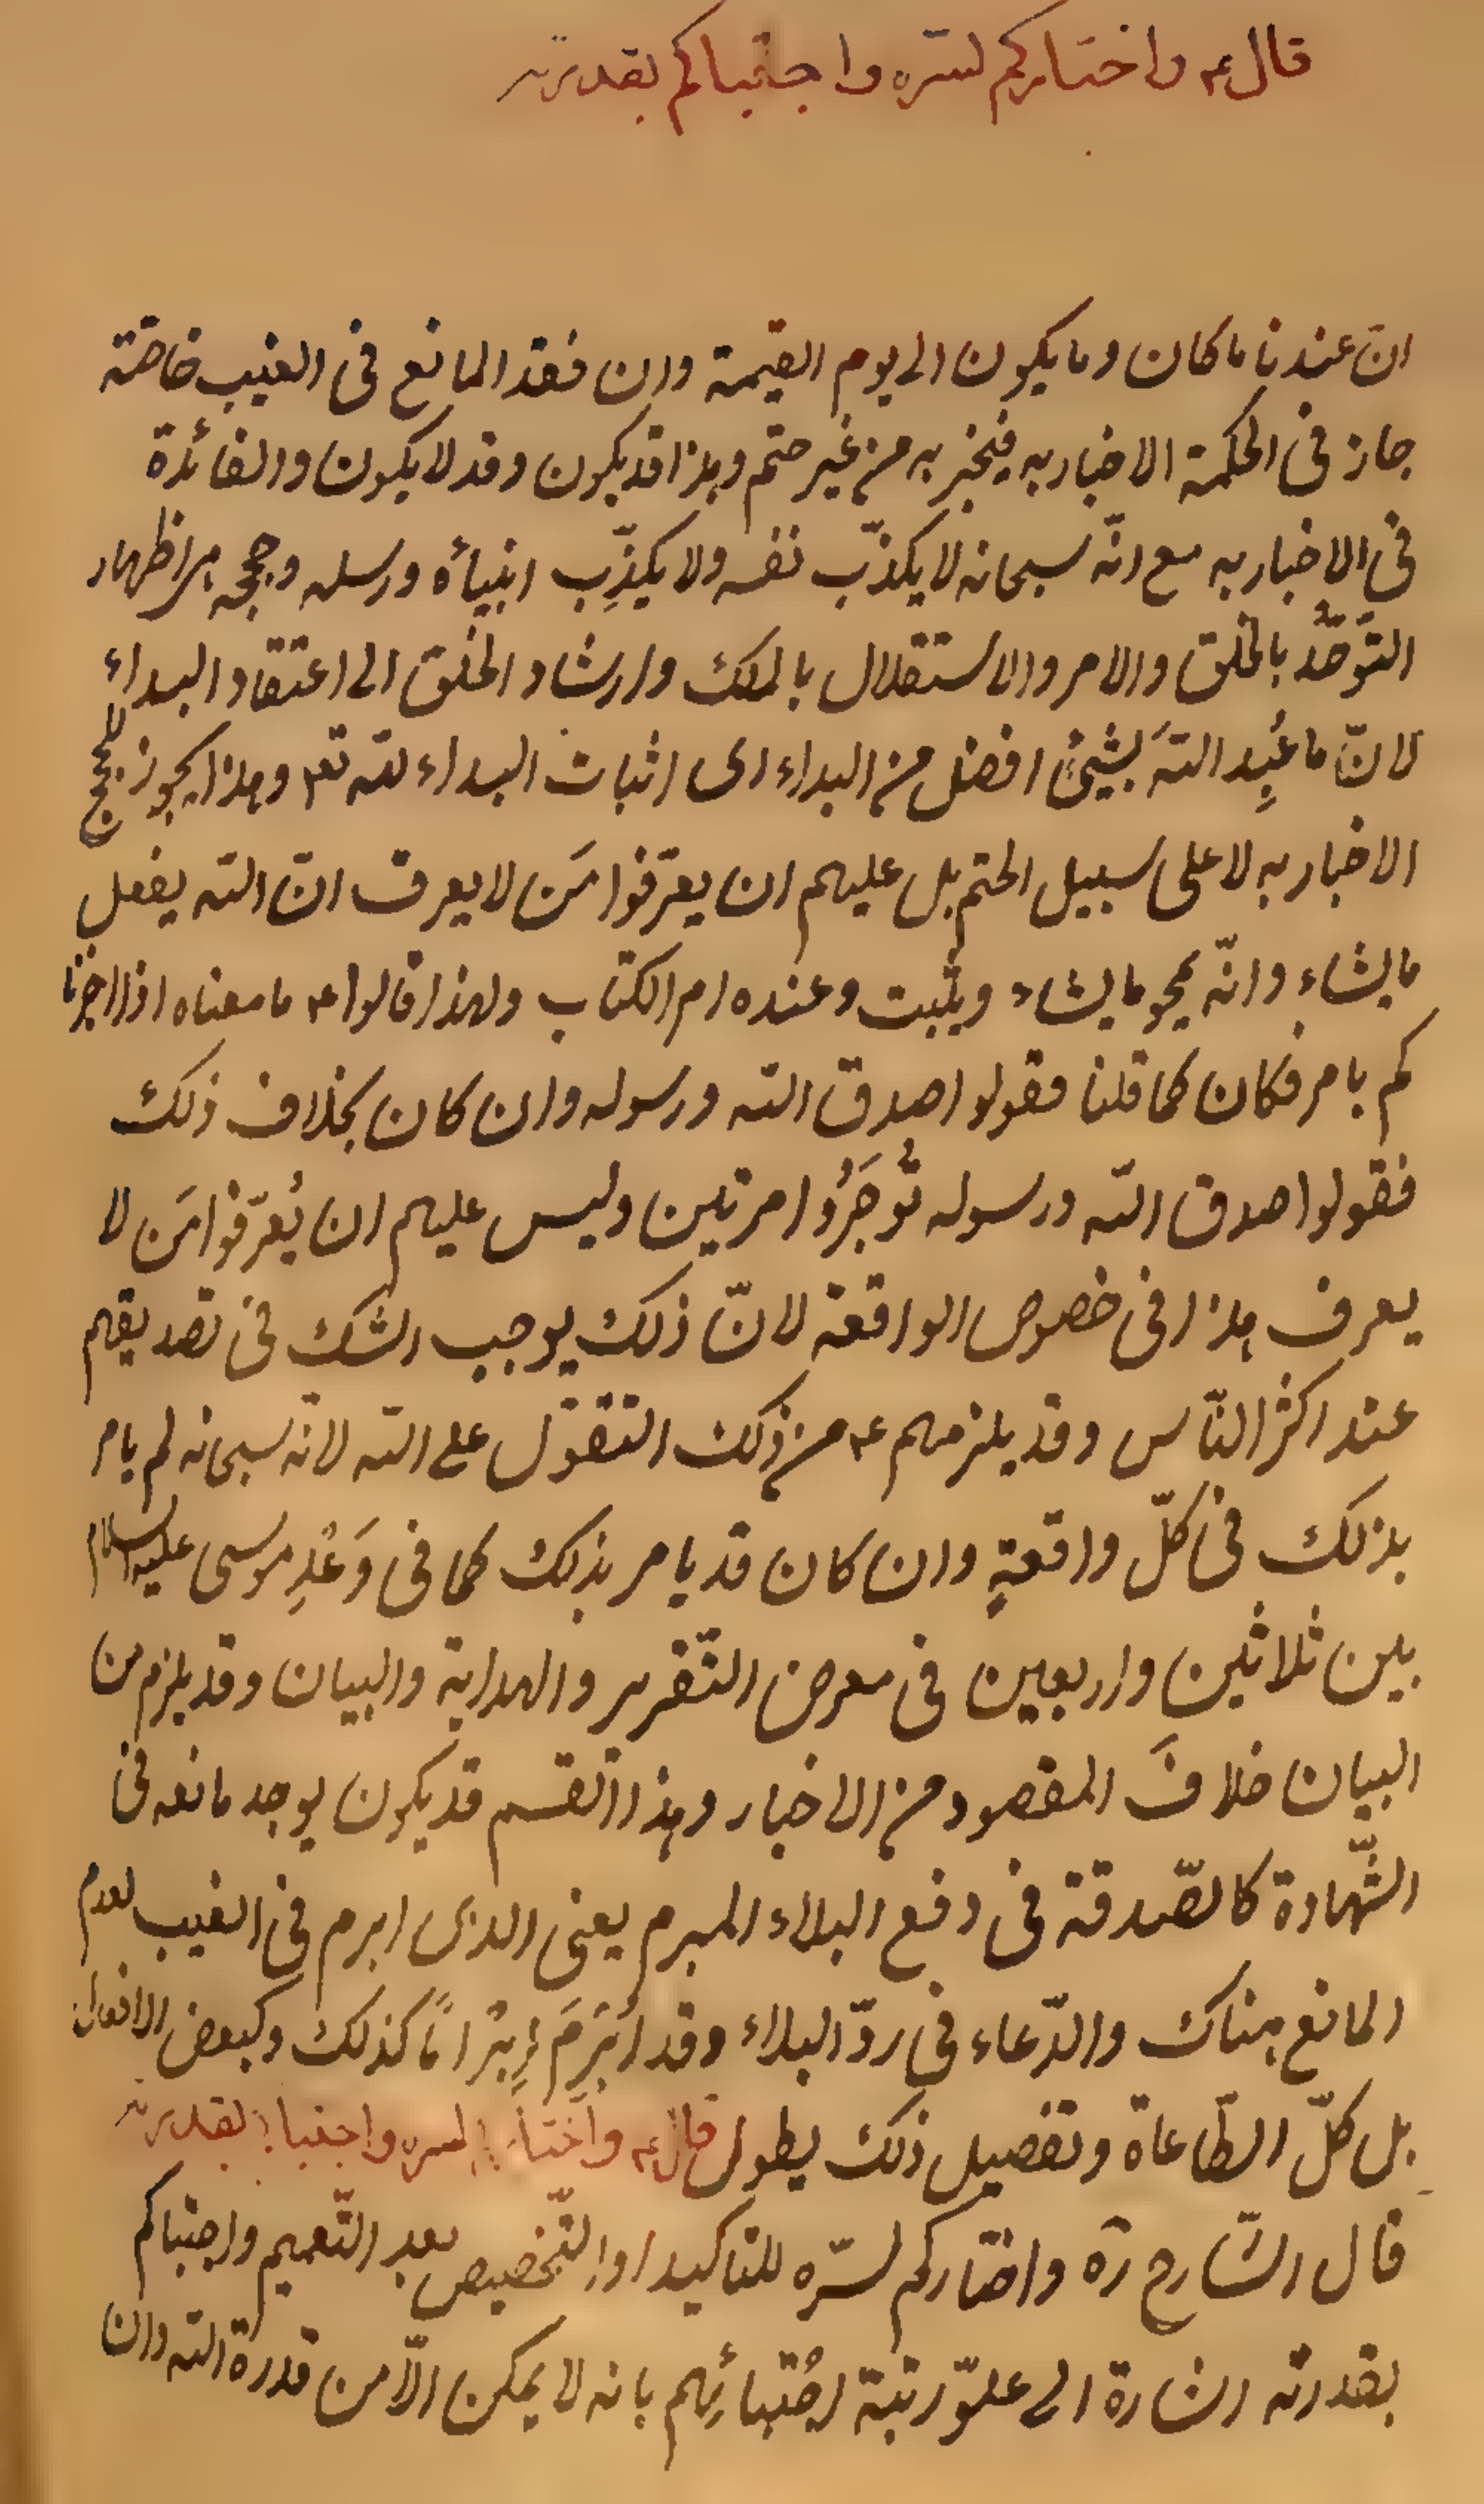 قال ع واختاركم لسرّه واجتباكم بقدرته
انّ عندنا ما كان وما يكون الى يوم القيمة وان فقد المانع فى الغيب خاصّة
جاز فى الحكمة الاخبار به فيخبر به من غير حتم وهذا قد يكون وقد لا يكون والفائدة
فى الاخبار به مع انّه سبحانه لا يكذّب نفسه ولا يكذِّب انبيأه ورسله وحججه اظهار
التوحّد بالخلق والامر والاستقلال بالملك وارشاد الخلق الى اعتقاد البداء
لانّ ما عُبِد اللهَ بشيئٍ افضل من البداء اى اثبات البداء لله تع وهذا يجوز للحجج
الاخبار به لا على سبيل الحتم بل عليهم ان يعرّفوا مَن لا يعرف انّ الله يفعل
ما يشاء وانّه يمحو ما يشاء ويثبت وعنده ام الكتاب ولهذا قالوا ع ما معناه اذا اخبرنا
كم بامر فكان كما قلنا فقولوا صدق الله ورسوله وان كان بخلاف ذلك
فقولوا صدق الله ورسوله تُوجَرُوا مرتين وليس عليهم ان يُعرّفوا مَن لا
يعرف هذا فى خصوص الواقعة لانّ ذلك يوجب الشك فى تصديقهم
عند اكثر النّاس وقد يلزمهم ع من ذلك التقوّل على الله لانه سبحانه لم يامر
بذلك فى كلّ واقعةٍ وان كان قد يامر بذلك كما فى وَعْدِ موسى عليه السلام
بين ثلاثين واربعين فى معرض التّقرير والهداية والبيان وقد يلزم من
البيان خلافَ المقصود من الاخبار وهذا القسم قد يكون يوجد مانعه فى
الشّهادة كالصّدقة فى دفع البلاء المبرم يعنى الذى ابرم فى الغيب لعدم
المانع هناك والدّعاء فى ردّ البلاء وقد اُبْرِمَ اِبْرَامًا كذلك وكبعض الافعال
بل كلّ الطّاعاة وتفصيل ذلك يطول قال ع واختاركم لسره واجتباكم بقدرته
قال الشّارح ره واختاركم لسرّه للتاكيد او التّخصيص بعد التّعميم واجتباكم
بقدرته اشارة الى علوّ رتبة اجْتبائِهم بانه لا يمكن الّا من قدرة الله وان